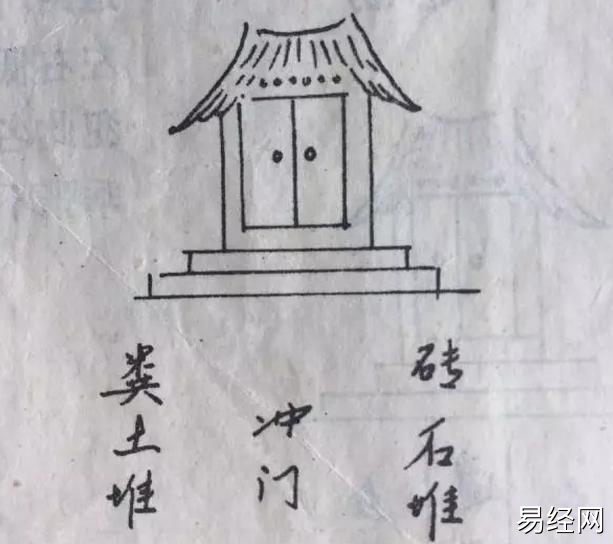 粪土堆
冲门
砖石堆
易经网